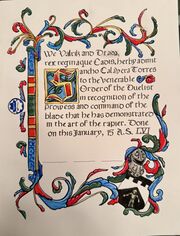 We Valrik and Dread,
rex reginaque Eadis, herby admit
Sancho Caldera Torres
to the Venerable
Order of the Duelist
in recognition of the
Prowess and command of the
blade that he has demonstrated
in the art of the rapier. Done
on this January, 15 A.S. LVI